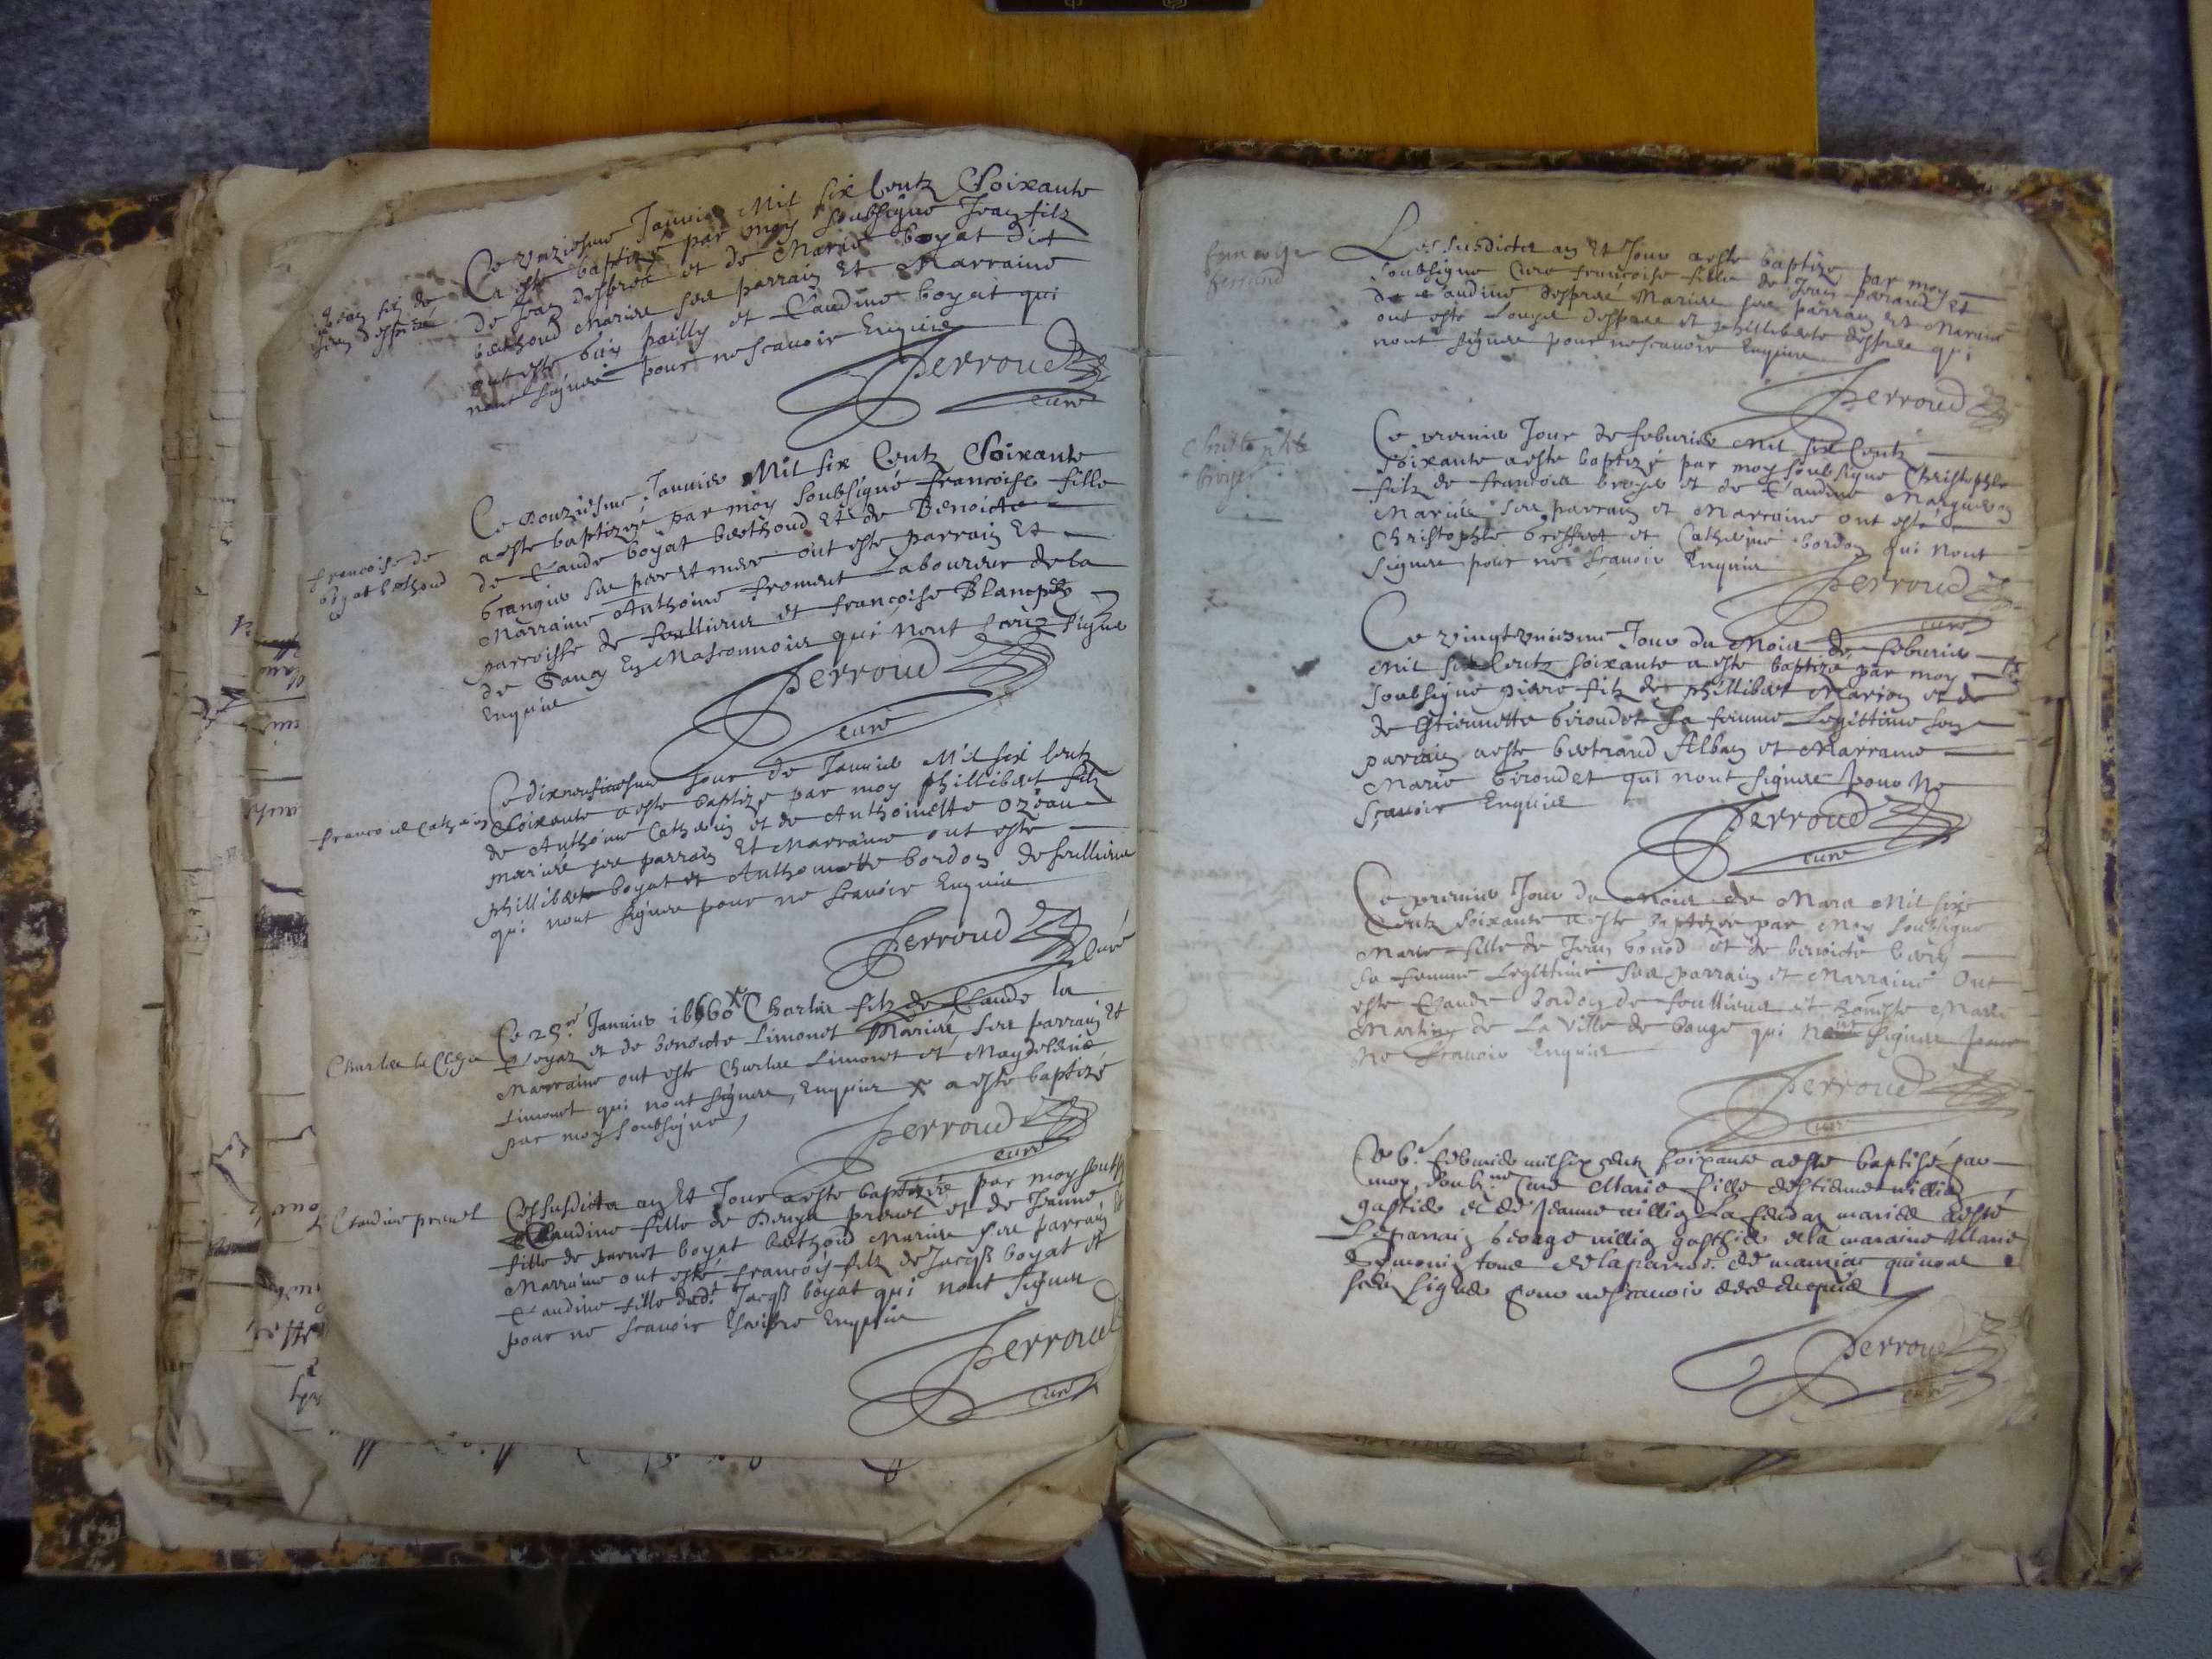 Jean filz de
Jean despres
Ce unziesme Januier Mil six Centz Soixante
a esté baptizé par moy soubsigne Jean filz
de Jean despres et de Marie boyat dict
berthoud Mariés ses parrain Et Marraine
ont esté Guy pailly et Claudine boyat qui
nont signés pour ne scauoir Enquis
Perroud
curé
francoise de
boyat berthoud
Ce douziesme Januier Mil six Centz Soixante
a esté baptizée par moy soubsigné francoise fille
de Claude boyat berthoud Et de Benoicte
Grangier ses pere et mere ont esté parrain Et
Marraine Anthoine froment Laboureur de la
parroisse de foullieux et francoise Blanc
de Sancy En Masconnois qui nont sceuz signer
Enquis
Perroud
curé
francois Catherin
Ce dixneufiesme Jour de Januier Mil six Centz
Soixante a esté baptizé par moy phillibert filz
de Anthoine Catherin et de Anthoinette Ozeau
mariés ses parrain Et Marraine ont esté
phillibert boyat et Anthoinette bordon de foullieux
qui nont signés pour ne scauoir Enquis
Perroud
Curé
Charles la
Ce 25 Januier 1660 x Charles filz de Claude la
et de benoicte Limonet Mariés, ses parrain Et
Marraine ont esté Charles Limonet et Magdeleine
Limonet qui nont signés, Enquis x a esté baptizé
par moy soubsigné,
Perroud
curé
Claudine preuel
Les susdicts an Et Jour a esté baptizée par moy soubs
Claudine fille de preuel et de Jeanne
fille de pernet boyat berthoud Mariés ses parrain Et
Marraine ont esté francois filz de Jacqs boyat Et
Claudine fille dud. Jacqs boyat qui nont signés
pour ne scauoir Escripre Enquis
Perroud
curé
francoise
ferrand
Les susdicts an Et Jour a esté baptizé par moy
soubsigne Curé francoise fille de Jean ferrand Et
de Claudine despres Mariés ses parrain Et Marraine
ont esté Louyse despres et phillibert despres qui
nont signés pour ne scauoir Enquis
Perroud
Christophle
broyer
Ce premier Jour de feburier Mil six Centz
Soixante a esté baptizé par moy soubsigne Christophle
filz de francois broyer et de Claudine Marguin
Mariés ses parrain et Marraine ont esté
Christophle et Catherine bordon qui nont
signés pour ne scauoir Enquis
Perroud
curé
Ce vingt uniesme Jour du Mois de feburier
Mil six Centz soixante a esté baptizé par moy
soubsigne pierre filz de phillibert Marion et de
de Estiennette Giroudet sa femme Legittime son
parrain a esté bertrand Alban et Marraine
Marie Giroudet qui nont signés pour Ne
scauoir Enquis
Perroud
curé
Ce premier Jour du Mois de Mars Mil six
Centz soixante a esté baptizée par Moy soubsigne
Marie fille de Jean bonod et de benoicte
sa femme Legittime ses parrain et Marraine Ont
esté Claude bordon de foullieux et honneste Marie
Martine de La Ville de bauge qui nont signés pour
Ne scauoir Enquis
Perroud
curé
Ce 6.e febvrier mil six centz soixante a esté baptisé par
moy soub.né Curé Marie fille destienne villiez
et de Jeanne villiez mariés a esté
Le parrain George villiez et la maraine Marie
de la parroisse de qui nont
signés pour ne scauoir de ce enquis
Perroud
curé